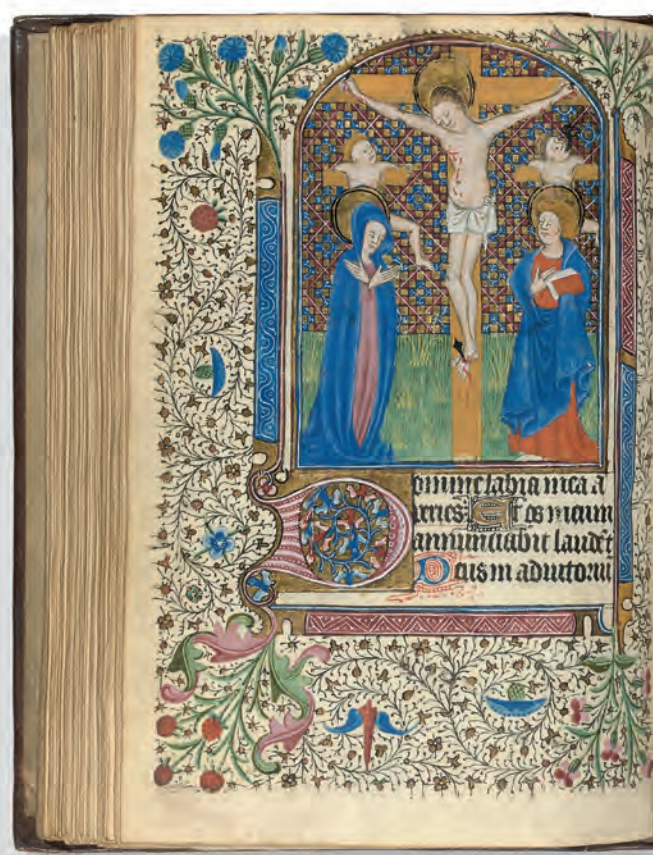 Domine labia mea a
peries: Et os meum
annunciabit laudē t
Deus in adiutoriū